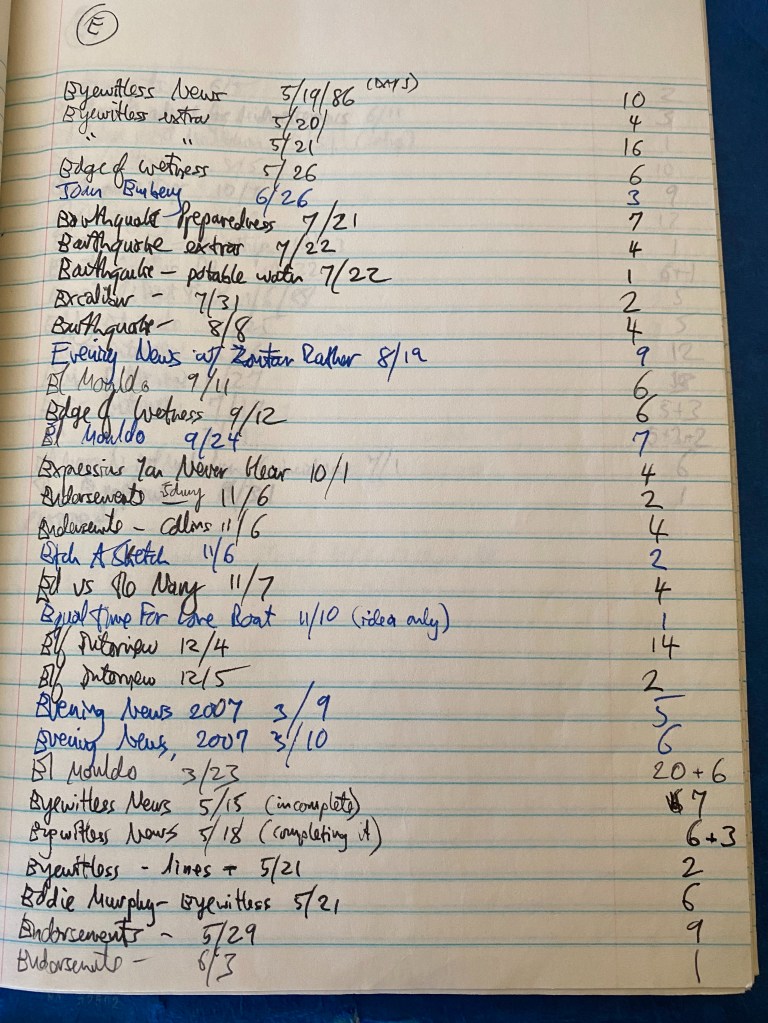 E
Eyewitless News 5/19/86 (DAYS) 10
Eyewitless extra 5/20/ 4
" " 5/21 16
Edge of Wetness 5/26 6
John 6/26 3
Earthquake Preparedness 7/21 7
Earthquake extras 7/22 4
Earthquake - potable water 7/22 1
Excalibur - 7/31 2
Earthquake - 8/8 4
Evening News w/ Zontar Rather 8/19 9
El Mouldo 9/11 6
Edge of Wetness 9/12 6
El Mouldo 9/24 7
Expressions You Never Hear 10/1 4
Endorsements 11/6 2
Endorsements - Collins 11/6 4
Etch A Sketch 11/6 2
Ed vs the Navy 11/7 4
Equal Time For Love Boat 11/10 (idea only) 1
Elf Interview 12/4 14
Elf Interview 12/5 2
Evening News 2007 3/9 5
Evening News, 2007 3/10 6
El Mouldo 3/23 20+6
Eyewitless News 5/15 (incomplete) 7
Eyewitless News 5/18 (completing it) 6+3
Eyewitless - lines - 5/21 2
Eddie Murphy - Eyewitless 5/21 6
Endorsements - 5/29 9
Endorsements - 6/3 1